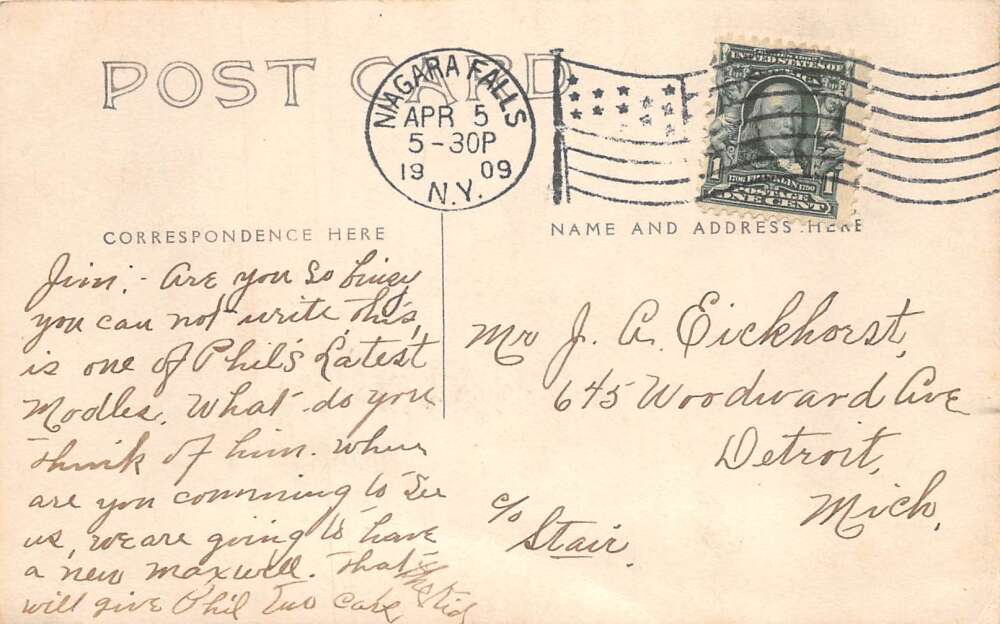 POST CARD
NIAGARA FALLS
APR 5
5-30P
19 09
N.Y.
UNITED STATES OF
AMERICA
1706 FRANKLIN 1790
POSTAGE
1 ONE CENT 1
CORRESPONDENCE HERE
NAME AND ADDRESS HERE
Jim:- Are you so buisy
you can not write, this,
is one of Phil's Latest
Modles. What do you
think of him. When
are you comming to see
us, we are going to have
a new maxwell. That
will give Phil Two Cars
The Kid
Mr J. A. Eickhorst,
645 Woodward Ave
Detroit,
Mich,
c/o
Stair.